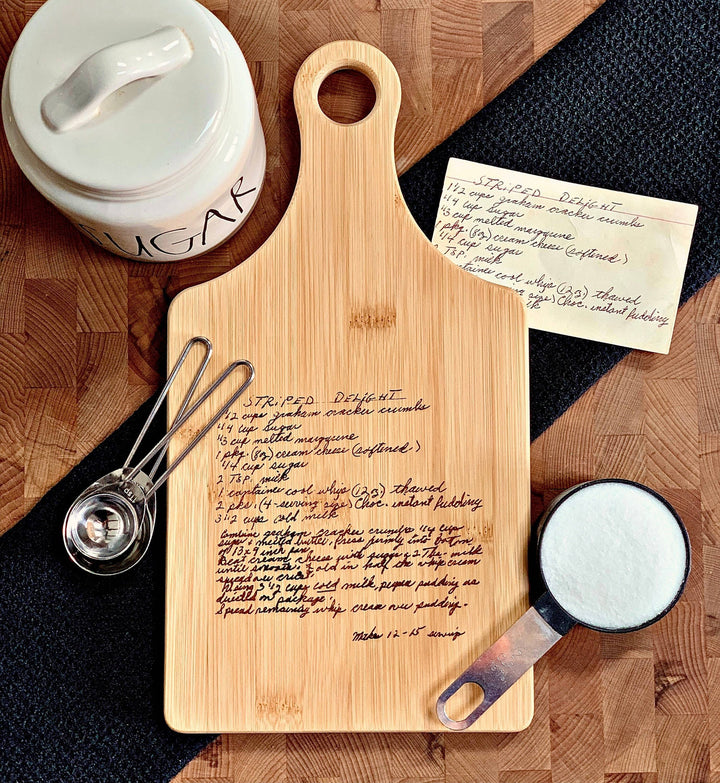 SUGAR
STRIPED DELIGHT
1 1/2 cups graham cracker crumbs
1/4 cup sugar
1/3 cup melted margarine
pkg. (8oz) cream cheese (softened)
1/4 cup sugar
2 TSP. milk
container cool whip (12oz) thawed
size) Choc. instant pudding
milk
STRIPED DELIGHT
1 1/2 cups graham cracker crumbs
1/4 cup sugar
1/3 cup melted margarine
1 pkg. (8oz) cream cheese (softened)
1/4 cup sugar
2 TSP. milk
1 container cool whip (12oz) thawed
2 pks. (4-serving size) Choc. instant pudding
3 1/2 cups cold milk
Combine graham cracker crumbs 1/4 cup
sugar & melted butter, Press firmly into bottom
of 13x9 inch pan.
Beat cream cheese with sugar & 2 Tbs. milk
until smooth. Fold in half the whip cream
spread over crust.
Using 3 1/2 cups cold milk, prepare pudding as
directed on package.
Spread remaining whip cream over pudding.
Makes 12-15 serving